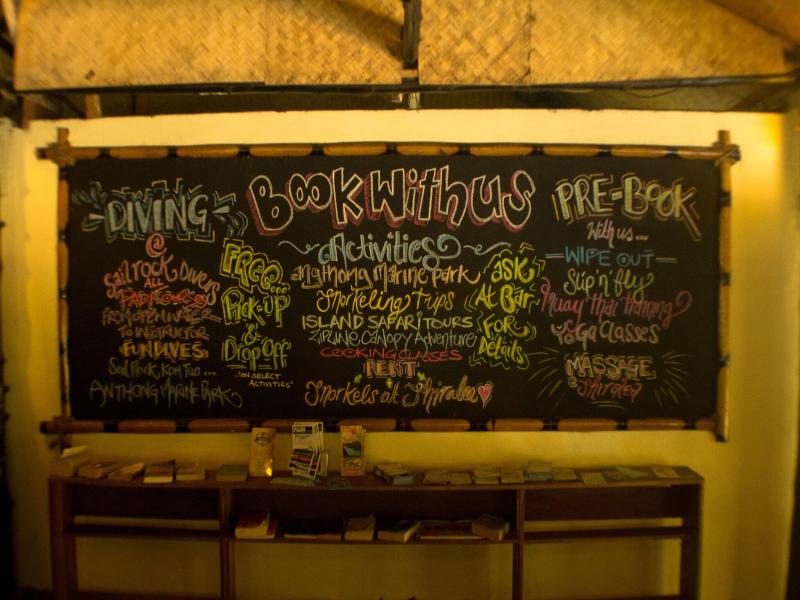 DIVING
@
Sail rock Divers
ALL
PADI COURSES
FROM OPEN WATER
TO INSTRUCTOR
FUN DIVES:
Sail Rock, Koh Tao ...
ANTHONG MARINE PARK
FREE...
PICK-UP
&
DROP OFF
"ON SELECT
ACTIVITIES"
BOOK With US
Activities
angthong Marine park
Snorkeling Trips
ISLAND SAFARI TOURS
ZIPLINE, CANOPY Adventure
COOKING CLASSES
RENT
Snorkels at Shiralea
ASK
At BAR
FOR
Details
PRE-BOOK
With us...
WIPE OUT
Slip 'n' fly
Muay thai training
YOGA CLASSES
MASSAGE
Shiralea